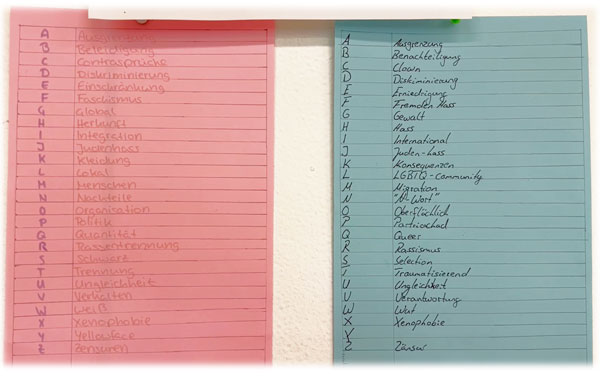 A Ausgrenzung
B Beleidigung
C Contrasprüche
D Diskriminierung
E Einschränkung
F Faschismus
G Global
H Herkunft
I Integration
J Judenhass
K Kleidung
L Lokal
M Menschen
N Nachteile
O Organisation
P Politik
Q Quantität
R Rassentrennung
S Schwarz
T Trennung
U Ungleichheit
V Verhalten
W weiß
X Xenophobie
Y Yellowface
Z Zensuren
A Ausgrenzung
B Benachteiligung
C Clown
D Diskriminierung
E Erniedrigung
F Fremden Hass
G Gewalt
H Hass
I International
J Juden-hass
K Konsequenzen
L LGBTQ-community
M Migration
N "N-Wort"
O Oberflächlich
P Patriachad
Q Queer
R Rassismus
S Selection
T Traumatisierend
U Ungleichkeit
V Verantwortung
W Wut
X Xenophobie
Y
Z Zänsur